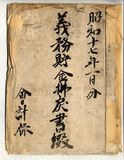 昭和十七年一月分
義務財金拂戻書綴
会計係